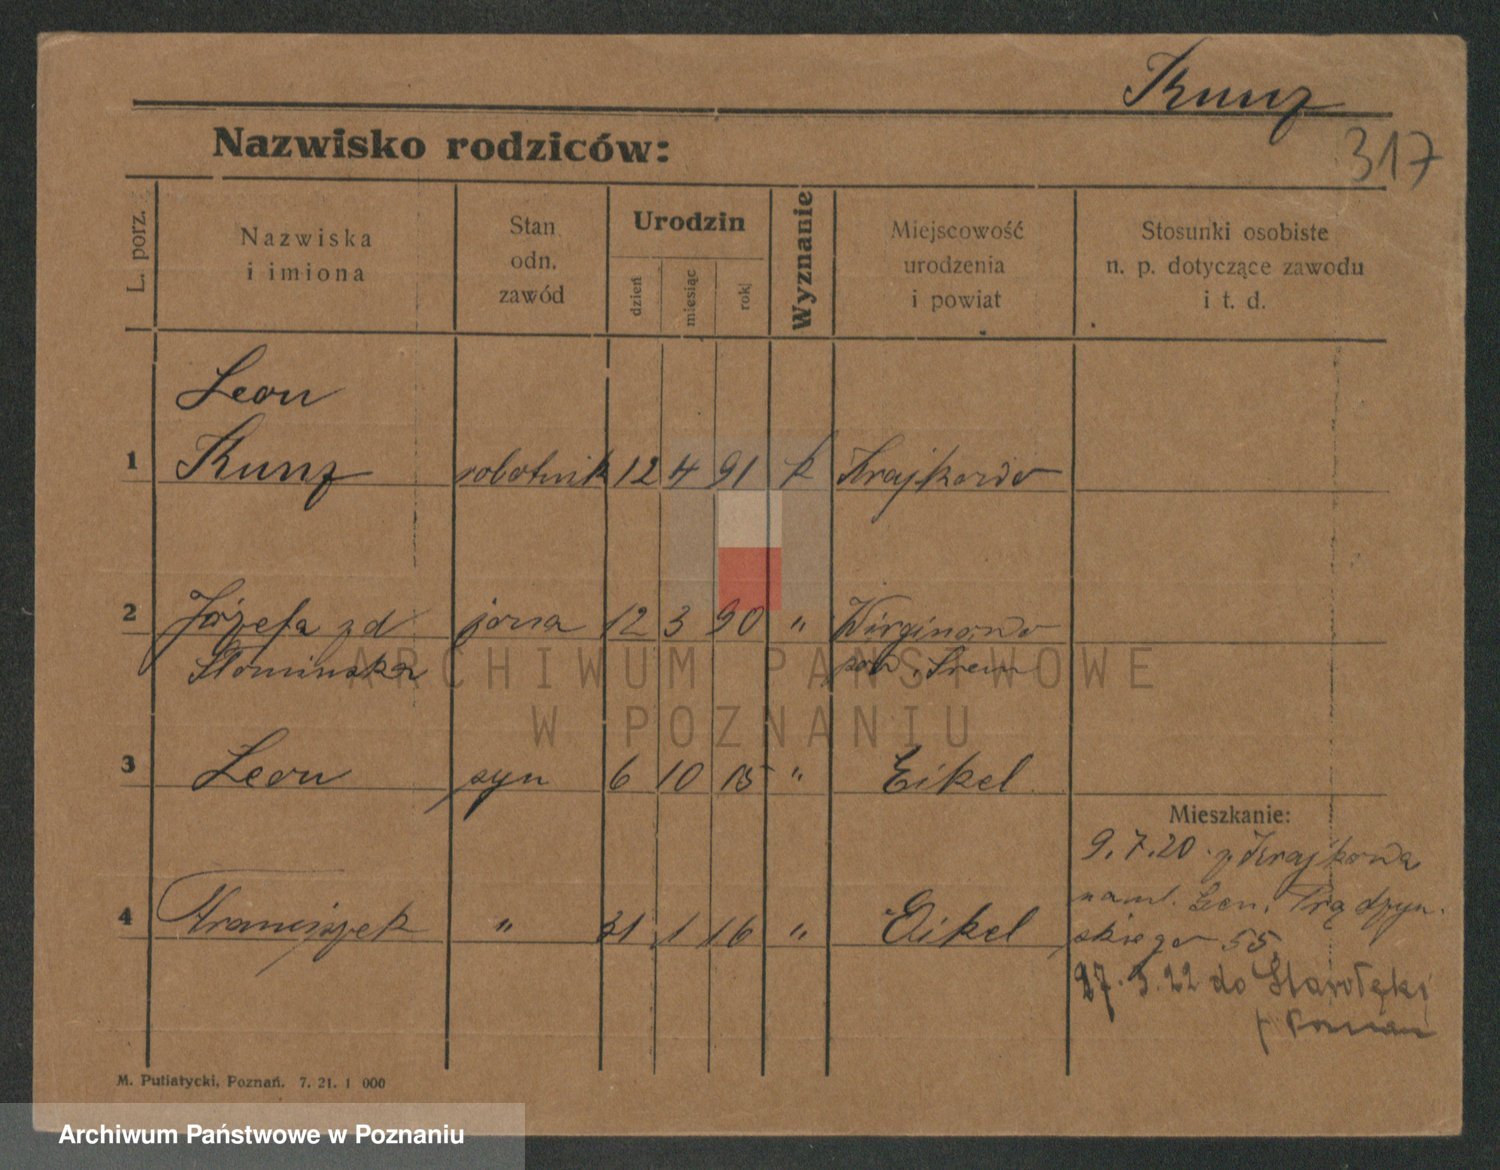 Kunz
317
Nazwisko rodziców:
L. porz.
Nazwiska
i imiona
Stan
odn.
zawód
Urodzin
dzień
miesiąc
rok
Wyznanie
Miejscowość
urodzenia
i powiat
Stosunki osobiste
n. p. dotyczące zawodu
i t. d.
Leon
1 Kunz robotnik 12 4 91 k Krajkowo
2 Józefa zd żona 12 3 90 " Wirginowo
Słomińska pow. Śrem
3 Leon syn 6 10 15 " Eikel
Mieszkanie:
9.7.20 z Krajkowa
naml. Gen. Prądzyń-
4 Franciszek " 31 1 16 " Eikel
skiego 55
27. 22 do Starołęki
Poznan
M. Putiatycki, Poznań. 7. 21. 1 000
ARCHIWUM PAŃSTWOWE
W POZNANIU
Archiwum Państwowe w Poznaniu